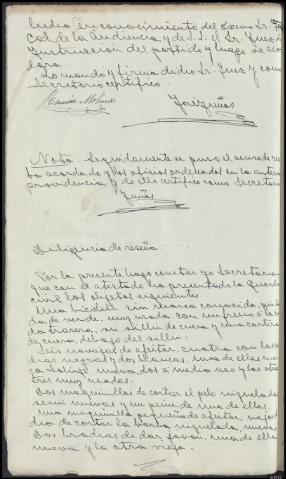 en conocimiento del Excmo Sr. Fis
cal de la Audiencia y de S.S. el Sr Juez de
Instruccion del partido y luego se aco
dara.
Lo mando y firma dicho Sr. Juez y como
Secretario certifico.
Nota. Seguidamente se puso el acuse de re
bo acordado y los oficios ordenados en la anterior
providencia y de ello certifico como Secretario
Diligencia de reseña
Por la presente hago constar yo Secretario
que con el atestado ha presentado la Guardia
civil los objetos siguientes
Una bicicleta sin marca conocida, pinta
da de verde, muy usada, con un freno a la rue
da trasera, un sillin de cuero y una cartera
de cuero debajo del sillin.
Seis navajas de afeitar, cuatro con las ca
chas negras y dos blancas, una de ellas mar
ca nueva, dos a medio uso y las otras
tres muy usadas.
Dos maquinillas de cortar el pelo niqueladas
semi nuevas y un peine de una de ellas.
Una maquinilla pequeña de afeitar,
de cortar la barba niquelada, nueva.
Dos brochas de dar jabon, una de ellas
nueva y la otra vieja.